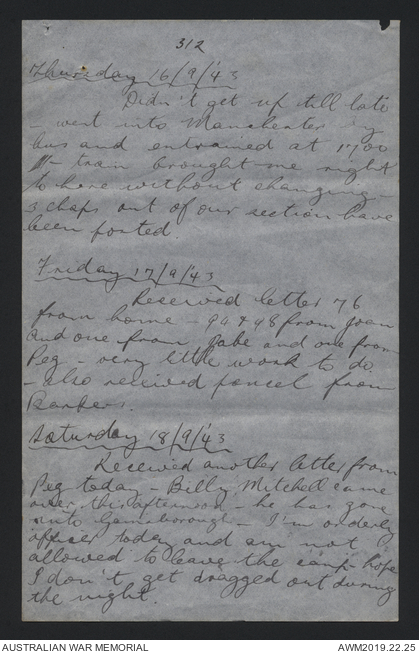 312
Thursday 16/9/'43
Didn't get up till late
- went into Manchester by
bus and entrained at 1700
- train brought me right
to here without changing -
3 chaps out of our section have
been posted.
Friday 17/9/'43
Received letter 76
from home - 94 & 98 from Joan
and one from Gabe and one from
Peg - very little work to do.
- also received parcel from
Barkers.
Saturday 18/9/'43
Received another letter from
Peg today - Billy Mitchell came
over this afternoon - he has gone
into Gainsborough - I'm orderly
officer today and am not
allowed to leave the camp - hope
I don't get dragged out during
the night.
AUSTRALIAN WAR MEMORIAL
AWM2019.22.25